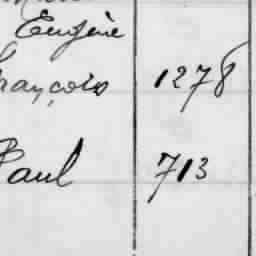 Eugène
François 1278
Paul 713